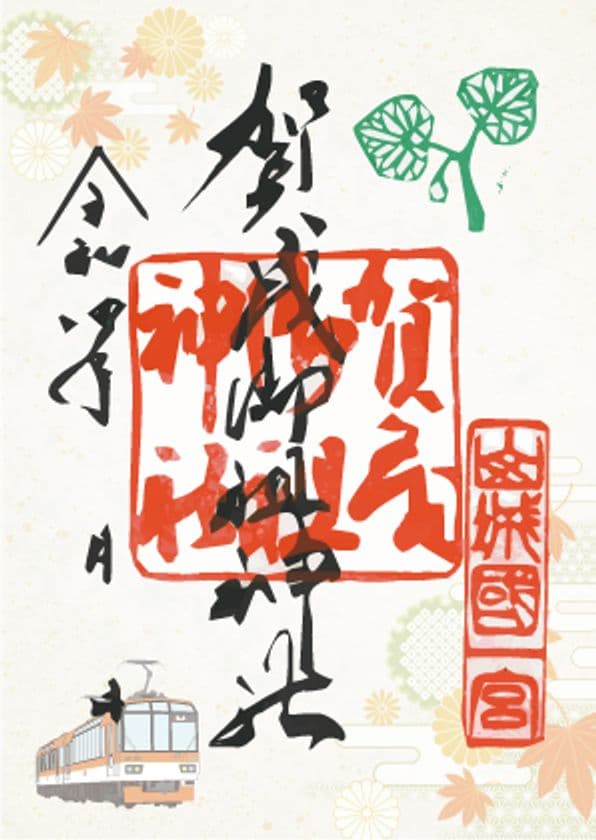 山城國一宮
賀茂御祖神社
賀茂御祖神社
令和 年 月